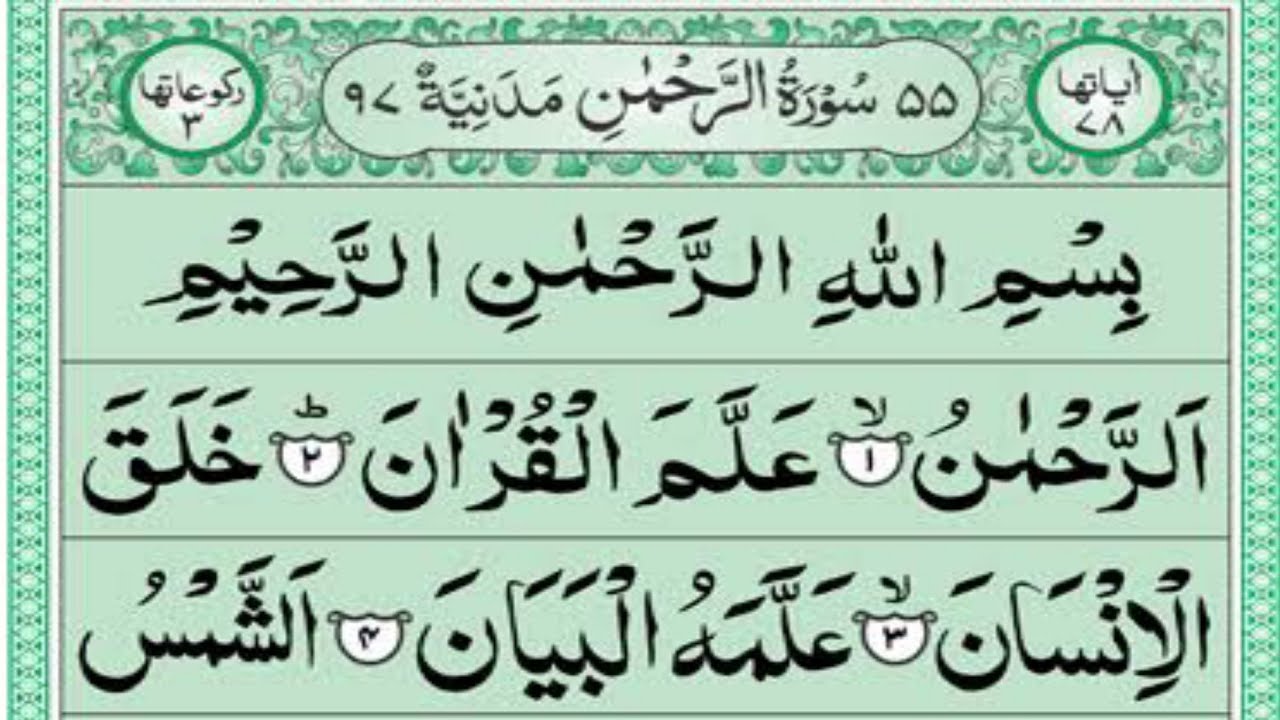 اٰیاتها ٧٨
٥٥ سُوْرَةُ الرَّحْمٰنِ مَدَنِيَّةٌ ٩٧
رکوعاتها ٣
بِسْمِ اللّٰهِ الرَّحْمٰنِ الرَّحِيْمِ
اَلرَّحْمٰنُ ۙ﴿۱﴾ عَلَّمَ الْقُرْاٰنَ ؕ﴿۲﴾ خَلَقَ
الْاِنْسَانَ ۙ﴿۳﴾ عَلَّمَهُ الْبَيَانَ ﴿۴﴾ اَلشَّمْسُ